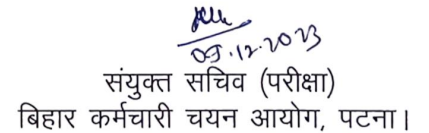 09.12.2023
संयुक्त सचिव (परीक्षा)
बिहार कर्मचारी चयन आयोग, पटना।